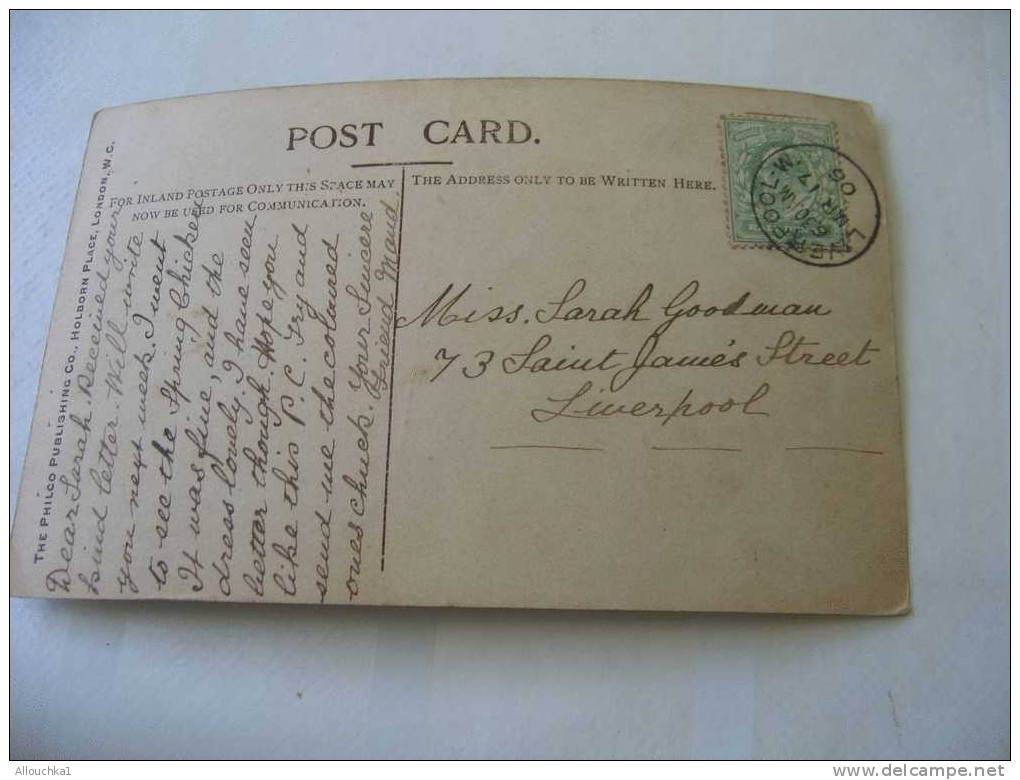 POST CARD.
FOR INLAND POSTAGE ONLY THIS SPACE MAY
NOW BE USED FOR COMMUNICATION.
THE ADDRESS ONLY TO BE WRITTEN HERE.
THE PHILCO PUBLISHING CO., HOLBORN PLACE, LONDON, W.C.
Dear Sarah. Received your
kind letter. Will write
you next week. I went
to see the Spring Chicken
It was fine, and the
dress lovely. I have seen
better though. Hope you
like this P. C. Try and
send me the coloured
ones chuck. Your Sincere
Friend Maud
Miss. Sarah Goodman
73 Saint James Street
Liverpool
LIVERPOOL.W.
MR 17
06
Allouchka1
delcampe.net